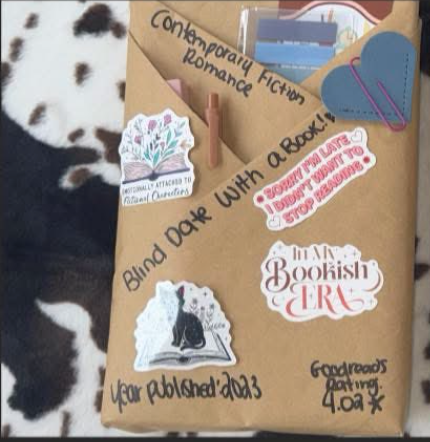 Contemporary Fiction
Romance
Blind Date With a Book!
EMOTIONALLY ATTACHED TO
Fictional Characters
SORRY I'M LATE
I DIDN'T WANT TO
STOP READING
In My
Bookish
ERA
Year published: 2023
Goodreads
Rating:
4.02